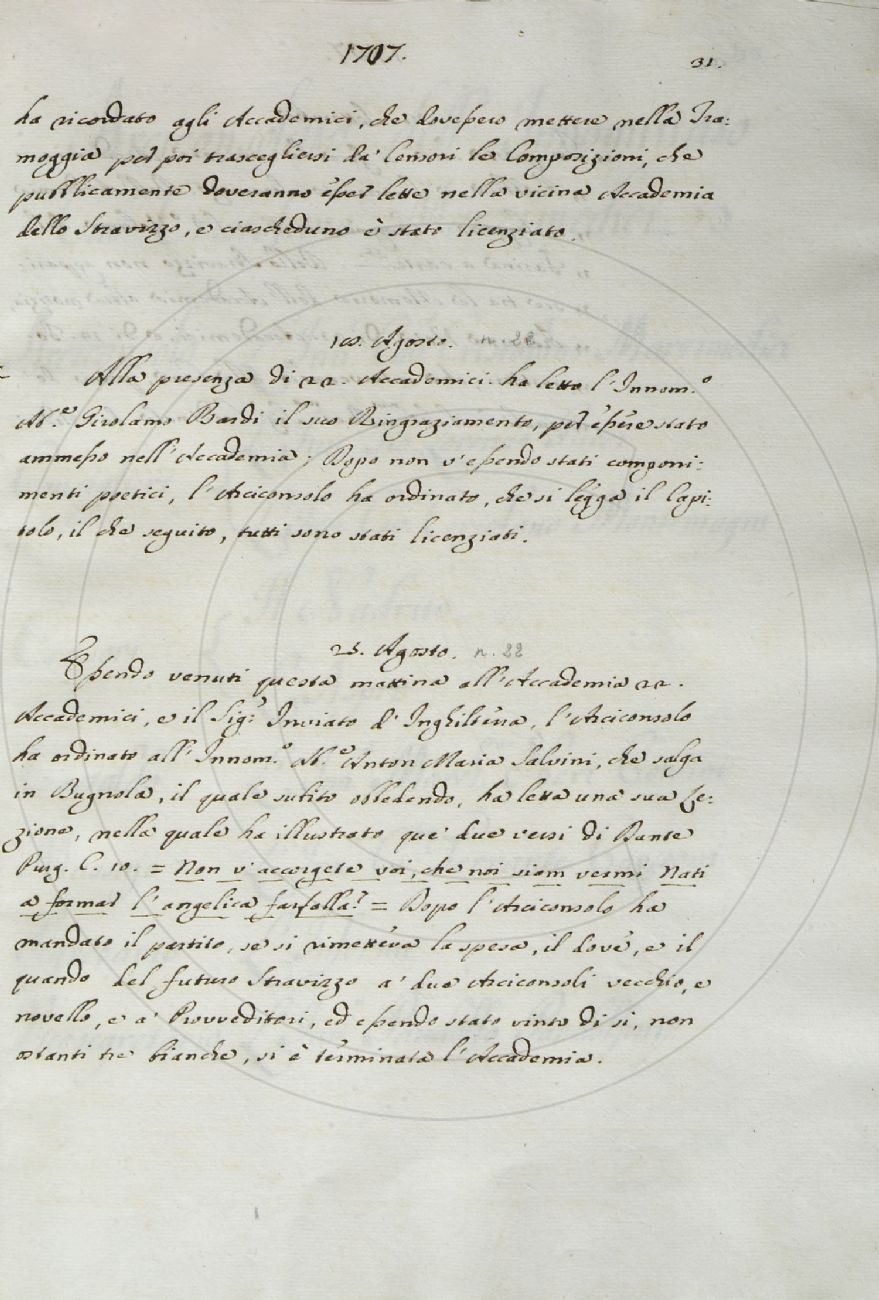 1707.
31.
ha ricordato agli Accademici, che dovessero mettere nella Tra:
moggia per poi trascegliersi da' Censori le Composizioni, che
pubblicamente doveranno esser lette nella vicina Accademia
dello Stravizzo, e ciascheduno è stato licenziato.
Agosto.
Alla presenza di 22. Accademici. ha letto l'Innom.o
Ab.e Girolamo Bardi il suo Ringraziamento, per essere stato
ammesso nell'Accademia; Dopo non v'essendo stati componi:
menti poetici, l'Arciconsolo ha ordinato, che si legga il Capi:
tolo, il che seguito, tutti sono stati licenziati.
25. Agosto. n. 22
Essendo venuti questa mattina all'Accademia 22.
Accademici, e il Sig.r Inviato d'Inghilterra, l'Arciconsolo
ha ordinato all'Innom.o Ab.e Anton Maria Salvini, che salga
in Bugnola, il quale subito obbedendo, ha letta una sua Le:
zione, nella quale ha illustrato que' due versi di Dante
Purg. C. 10. = Non v'accorgete voi, che noi siam vermi Nati
a formar l'angelica farfalla? = Dopo l'Arciconsolo ha
mandato il partito, se si rimetteva la spesa, il dove, e il
quando del futuro Stravizzo a' due Arciconsoli vecchio, e
novello, e a' Provveditori, ed essendo stato vinto di sì, non
ostanti tre bianche, si è terminata l'Accademia.